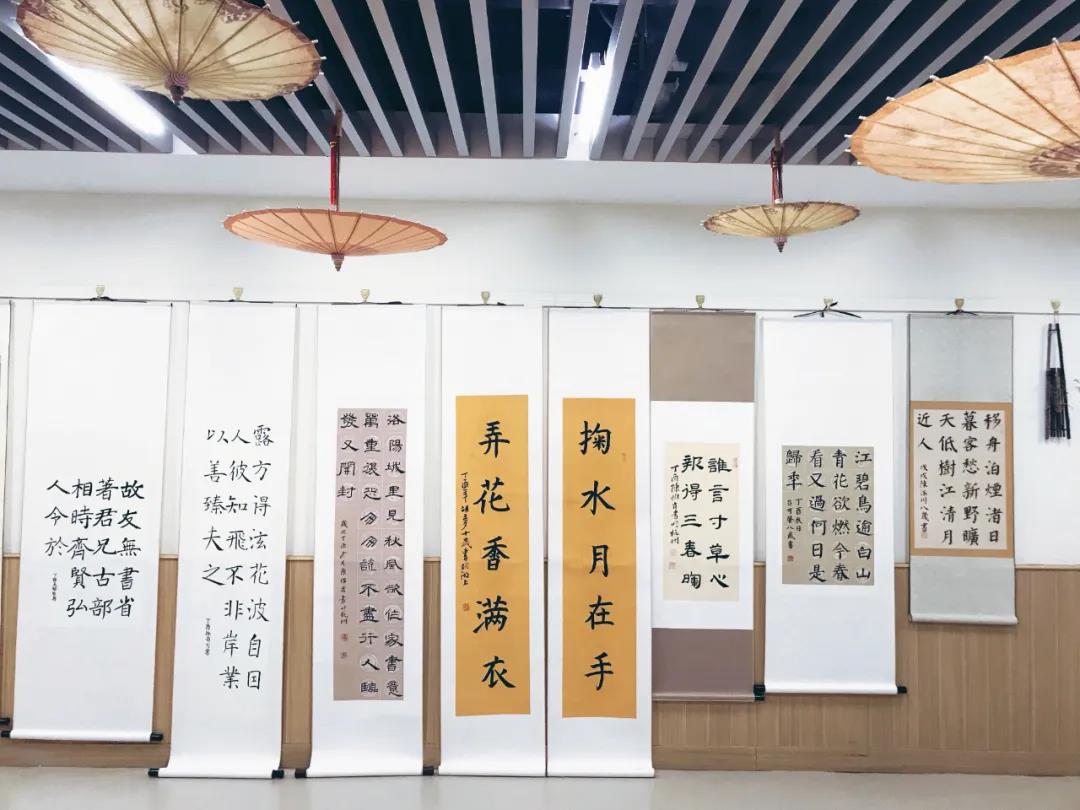 移舟泊煙渚日
暮客愁新野曠
天低樹江清月
近人
江碧鳥逾白山
青花欲燃今春
看又過何日是
歸年
丁酉秋日
八歲書
誰言寸草心
報得三春暉
掬水月在手
弄花香满衣
洛陽城里見秋風欲作家書意
萬重復恐匆匆說不盡行人臨
發又開封
露方得泫花波自回
人彼知飛不非岸業
以善臻夫之
故友無書省
著君兄古部
相時齊賢弘
人今於